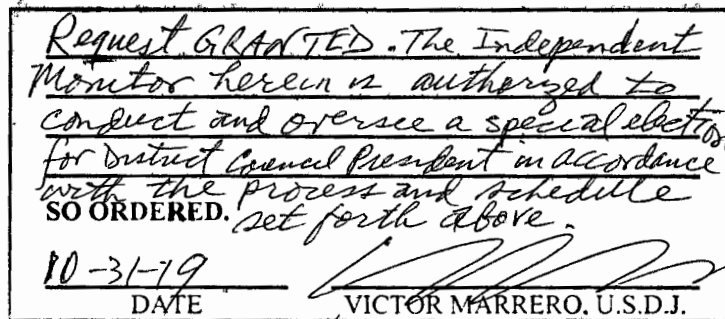 Request GRANTED. The Independent
Monitor herein is authorized to
conduct and oversee a special election
for District Council President in accordance
with the process and schedule
SO ORDERED. set forth above.
10-31-19
DATE VICTOR MARRERO, U.S.D.J.